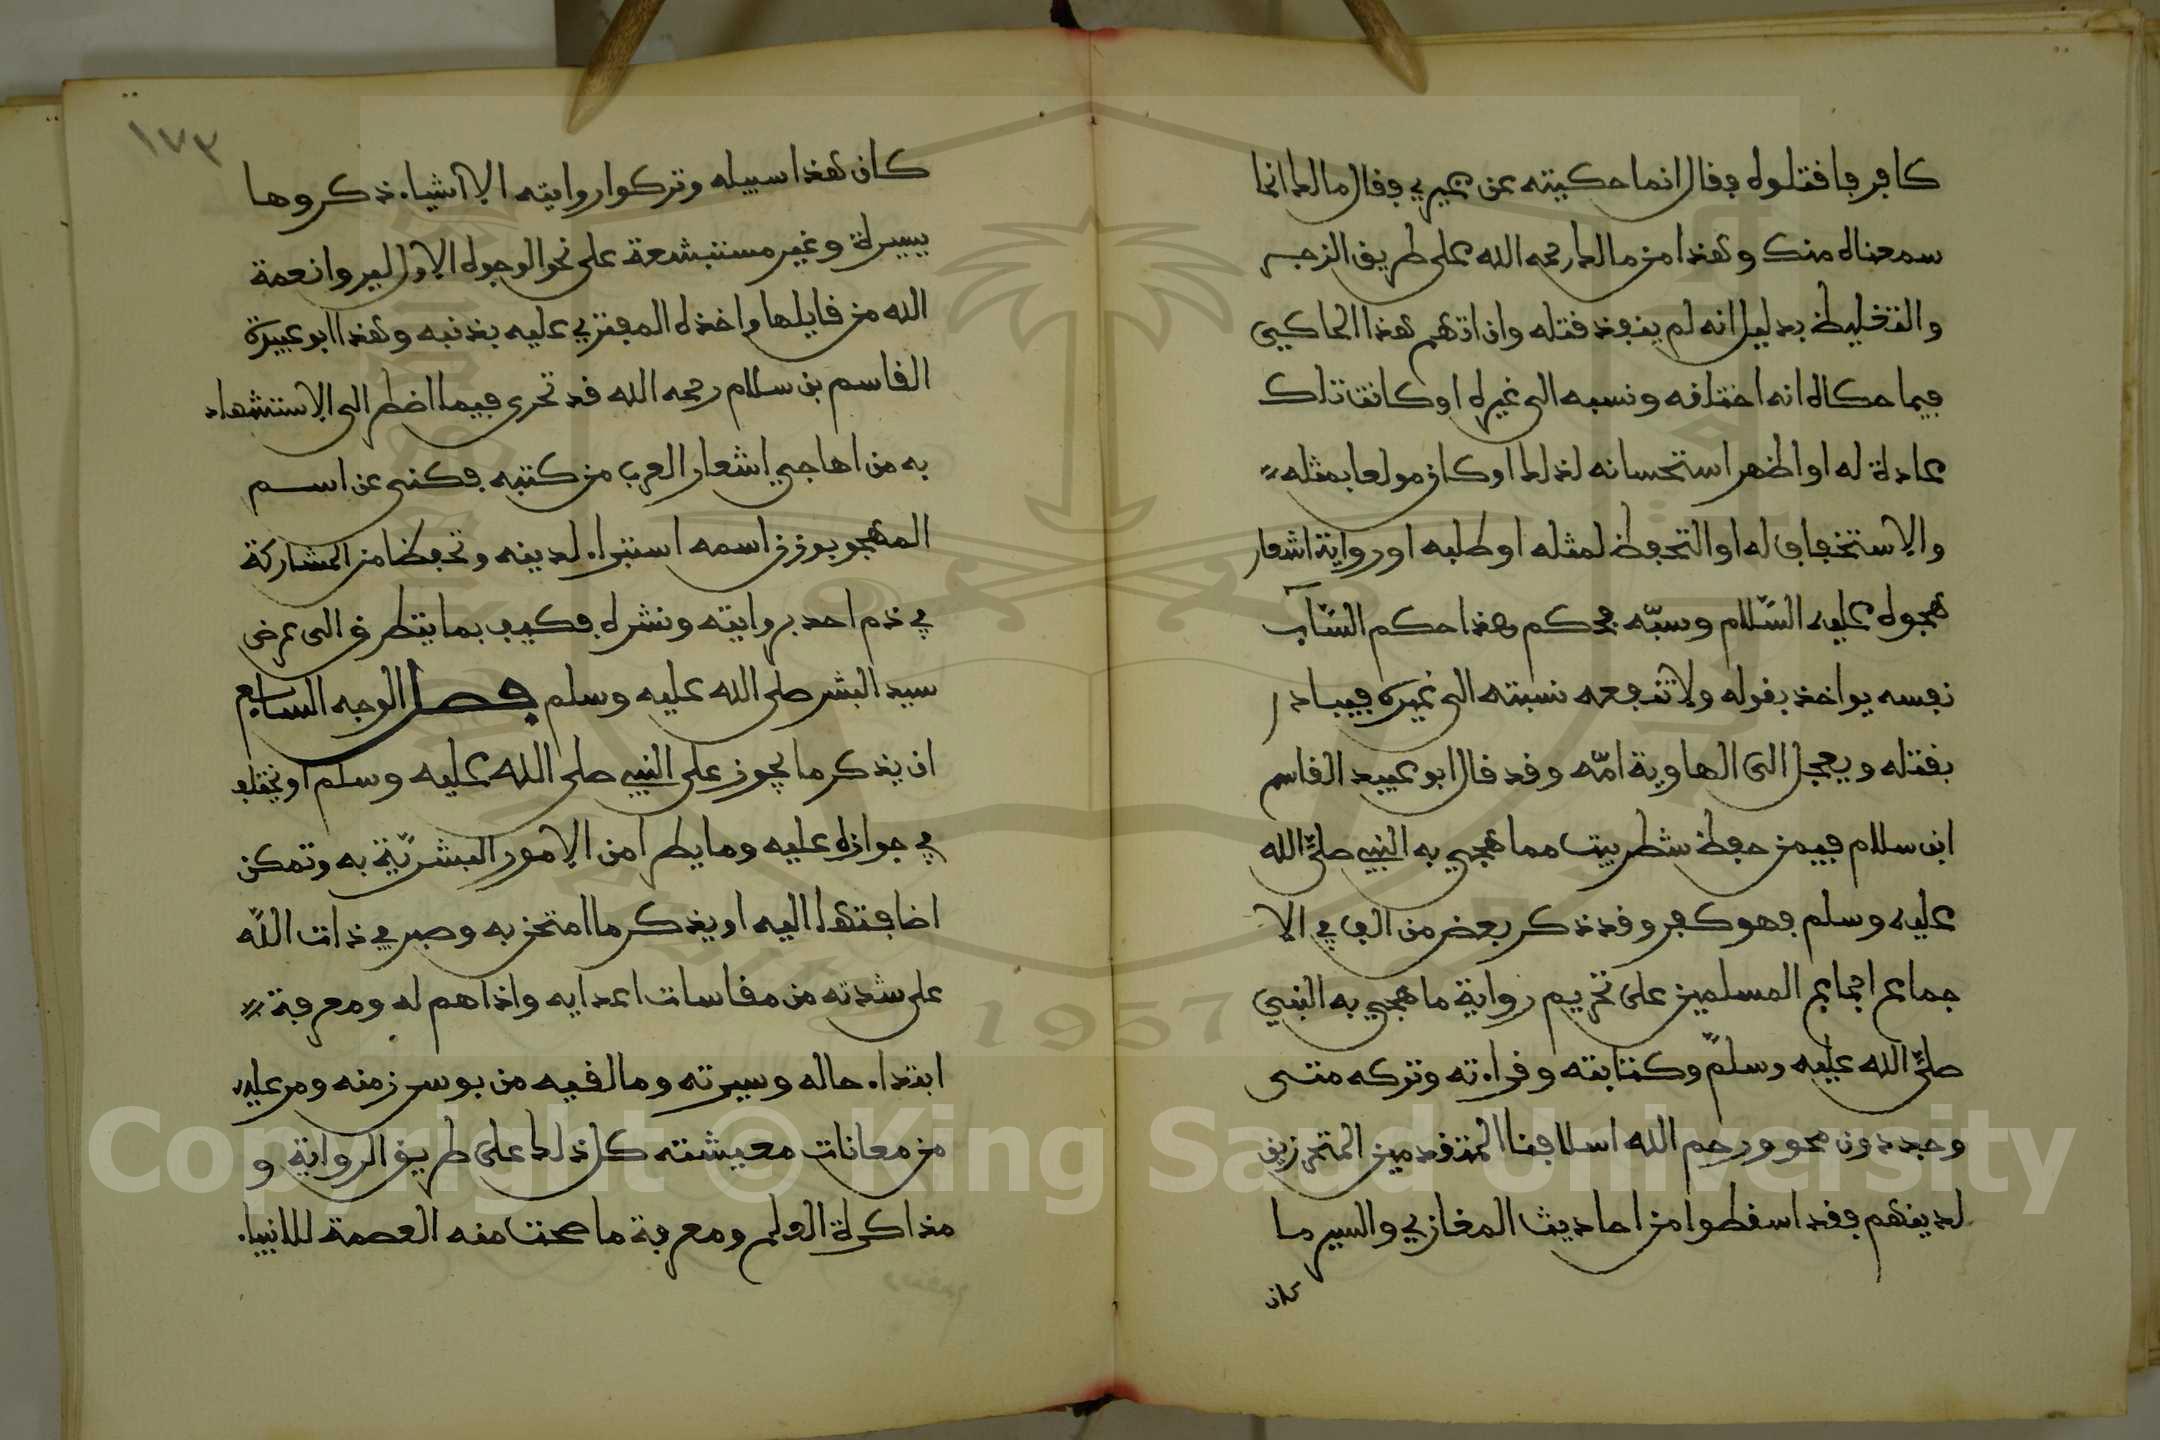 كافر فاقتلوه فقال انما حكيته عن غيري فقال مالك انما
سمعناه منك وهذا من مالك رحمه الله على طريق الزجر
والتغليظ بدليل انه لم ينفذ قتله وان اتهم هذا الحاكي
فيما حكاه انه اختلقه ونسبه الى غيره او كانت تلك
عادة له او اظهر استحسانه لذلك او كان مولعا بمثله
والاستخفاف له او التحفظ لمثله او طلبه او رواية اشعار
هجوه عليه السّلام وسبّه فحكم هذا حكم السّآب
نفسه يواخذ بقوله ولا تنفعه نسبته الى غيره فيبادر
بقتله ويعجل الى الهاوية امّه وقد قال ابو عبيد القاسم
ابن سلام فيمن حفظ شطر بيت مما هجي به النبي صلى الله
عليه وسلم فهو كفر وقد ذكر بعض من الف في الا
جماع اجماع المسلمين على تحريم رواية ما هجي به النبي
صلى الله عليه وسلم وكتابته وقراءته وتركه متى
وجد دون محو ورحم الله اسلافنا المتقدمين المتحرزين
لدينهم فقد اسقطوا من احاديث المغازي والسير ما
كان
١٧٣
كان هذا سبيله وتركوا روايته الا اشياء ذكروها
يسيرة وغير مستبشعة على نحو الوجوه الاول ليروا نعمة
الله من قايلها واخذه المفتري عليه بذنبه وهذا ابو عبيدة
القاسم بن سلام رحمه الله قد تحرى فيما اضطر الى الاستشهاد
به من اهاجي اشعار العرب من كتبه فكنى عن اسم
المهجو بوزن اسمه استبراء لدينه وتحفظا من المشاركة
في ذم احد بروايته ونشره فكيف بما يتطرق الى عرض
سيد البشر صلى الله عليه وسلم فصل الوجه السابع
ان يذكر ما يجوز على النبي صلى الله عليه وسلم او يختلف
في جوازه عليه وما يطرا من الامور البشريّة به وتمكن
اضافتها اليه او يذكر ما امتحن به وصبر في ذات اللّه
على شدته من مقاسات اعدايه واذاهم له ومعرفة
ابتداء حاله وسيرته وما لقيه من بوس زمنه ومر عليه
من معانات معيشته كل ذلك على طريق الرواية و
مذاكرة العلم ومعرفة ما صحت منه العصمة للانبياء
Copyright © King Saud University
1957